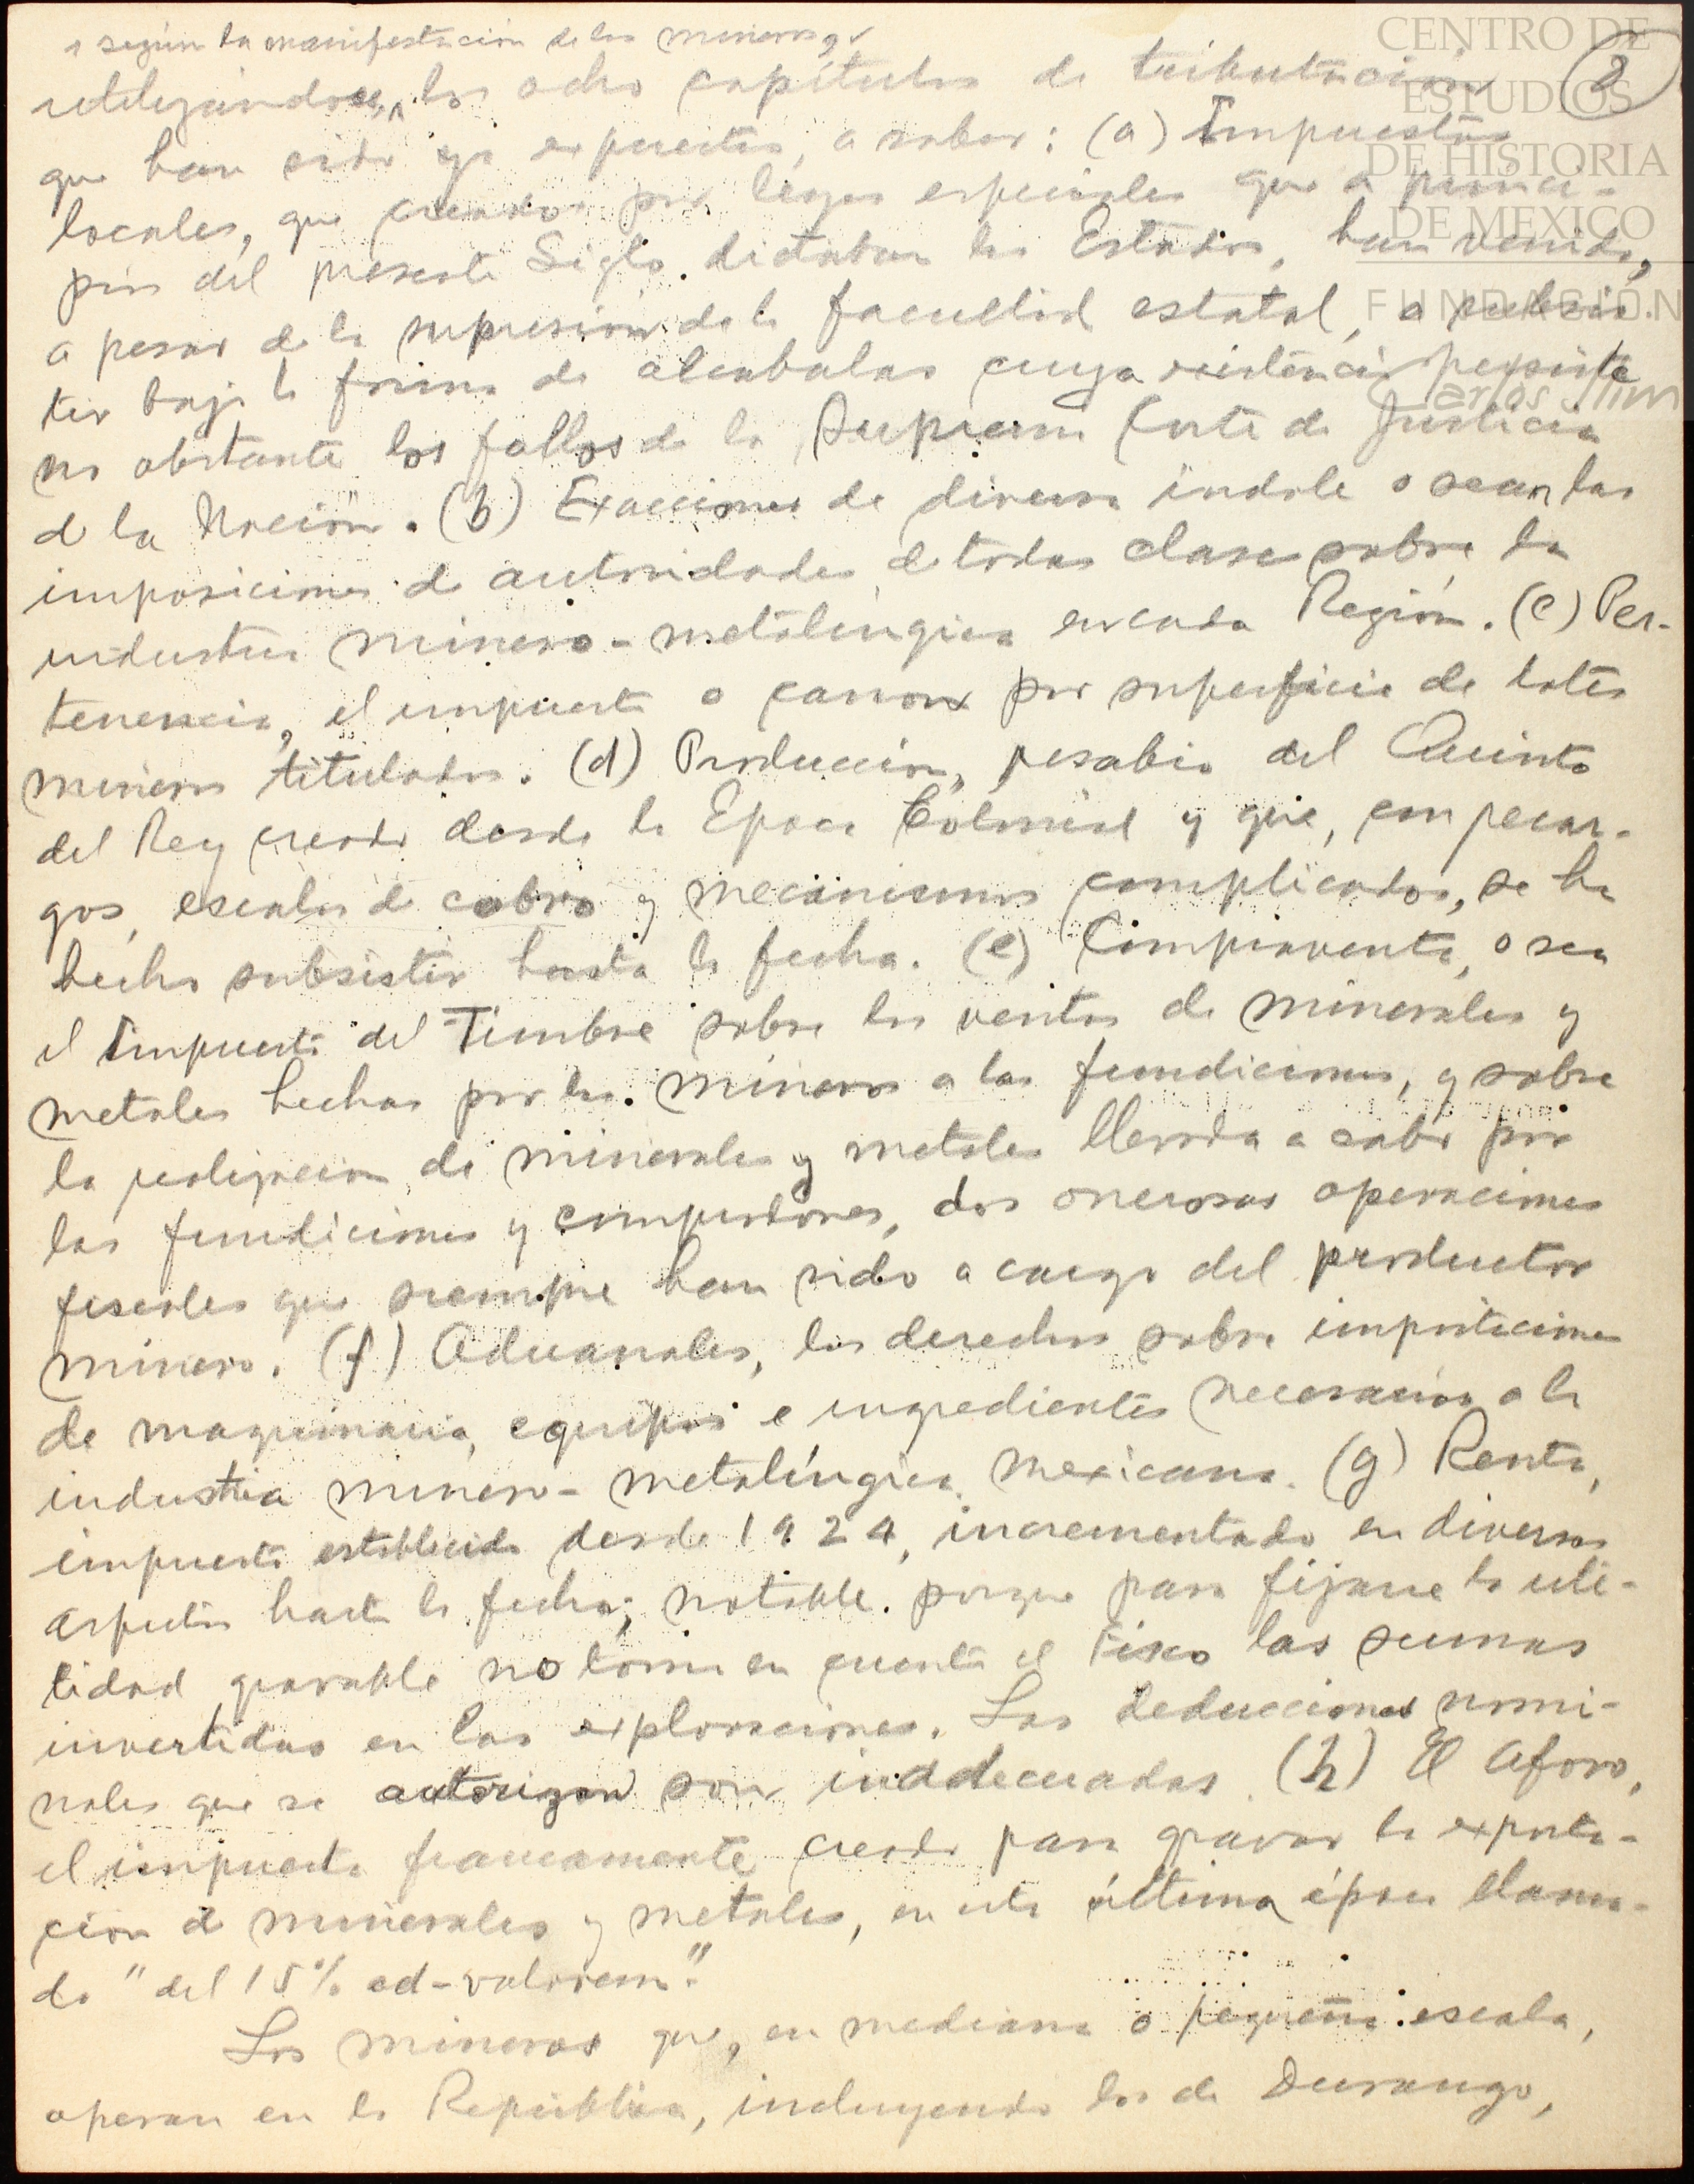 según la manifestación de los mineros,
utilizándose, los ocho capítulos de tributación
2
que han sido ya expuestos, a saber: (a) Impuestos
locales, que creados por leyes especiales que a princi-
pios del presente Siglo dictaban los Estados, han venido,
a pesar de la supresión de la facultad estatal, a subsis-
tir bajo la forma de alcabalas cuya existencia persiste
no obstante los fallos de la Suprema Corte de Justicia
de la Nación. (b) Exacciones de diversa índole o sean las
imposiciones de autoridades de todas clases sobre la
industria minero-metalúrgica en cada Región. (c) Per-
tenencia, el impuesto o canon por superficie de lotes
mineros titulados. (d) Producción, resabio del Quinto
del Rey creado desde la Epoca Colonial y que, con recar-
gos, escalas de cobro y mecanismos complicados, se ha
hecho subsistir hasta la fecha. (e) Compraventa, o sea
el Impuesto del Timbre sobre las ventas de minerales y
metales hechas por los mineros a las fundiciones, y sobre
la realización de minerales y metales llevada a cabo por
las fundiciones y compradores, dos onerosas operaciones
fiscales que siempre han sido a cargo del productor
minero. (f) Aduanales, los derechos sobre importaciones
de maquinaria, equipos e ingredientes necesarios a la
industria minero-metalúrgica mexicana. (g) Renta,
impuesto establecido desde 1924, incrementado en diversos
aspectos hasta la fecha; notable porque para fijarse la uti-
lidad gravable no toma en cuenta el Fisco las sumas
invertidas en las exploraciones. Las deducciones nomi-
nales que se autorizan son inadecuadas. (h) El Aforo,
el impuesto francamente creado para gravar la exporta-
ción de minerales y metales, en esta última época llama-
do "del 15% ad-valorem".
Los mineros que, en mediana o pequeña escala,
operan en la República, incluyendo los de Durango,
CENTRO DE
ESTUDIOS
DE HISTORIA
DE MEXICO
FUNDACIÓN
Carlos Slim